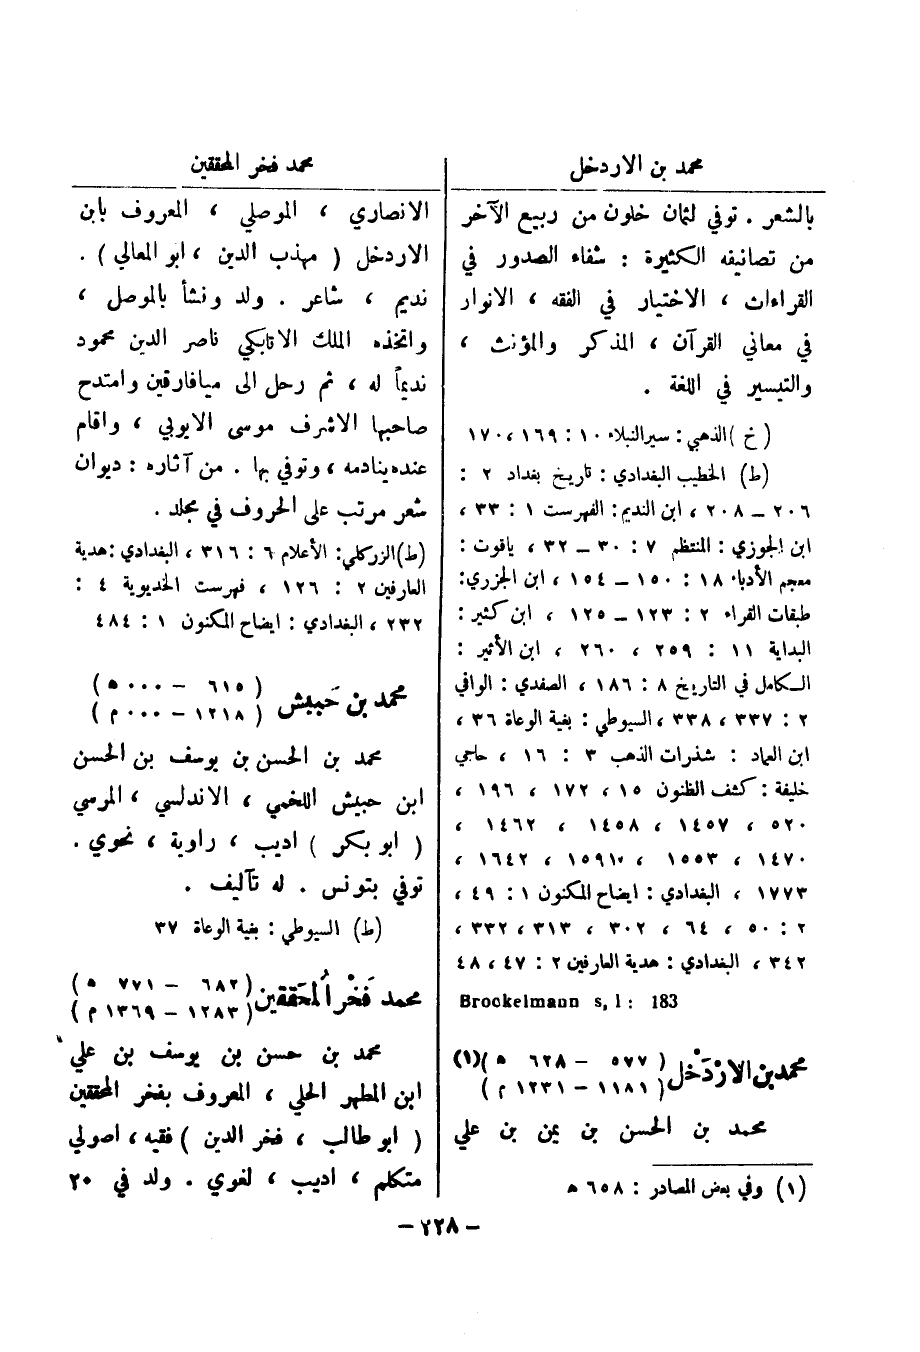 محمد بن الاردخل
بالشعر . توفي لثمان خلون من ربيع الآخر
من تصانيفه الكثيرة : شفاء الصدور في
القراءات ، الاختيار في الفقه ، الانوار
في معاني القرآن ، المذكر والمؤنث ،
والتيسير في اللغة .
( خ ) الذهبي : سير النبلاء ١٠ : ١٦٩ ، ١٧٠
(ط) الخطيب البغدادي : تاريخ بغداد ٢ :
٢٠٦ – ٢٠٨ ، ابن النديم : الفهرست ١ : ٣٣ ،
ابن الجوزي : المنتظم ٧ : ٣٠ – ٣٢ ، ياقوت :
معجم الأدباء ١٨ : ١٥٠ – ١٥٤ ، ابن الجزري :
طبقات القراء ٢ : ١٢٣ – ١٢٥ ، ابن كثير :
البداية ١١ : ٢٥٩ ، ٢٦٠ ، ابن الأثير :
الكامل في التاريخ ٨ : ١٨٦ ، الصفدي : الوافي
٢ : ٣٣٧ ، ٣٣٨ ، السيوطي : بغية الوعاة ٣٦ ،
ابن العماد : شذرات الذهب ٣ : ١٦ ، حاجي
خليفة : كشف الظنون ١٥ ، ١٧٢ ، ١٩٦ ،
٥٢٠ ، ١٤٥٧ ، ١٤٥٨ ، ١٤٦٢ ،
١٤٧٠ ، ١٥٥٣ ، ١٥٩١ ، ١٦٤٢ ،
١٧٧٣ ، البغدادي : ايضاح المكنون ١ : ٤٩ ،
٢ : ٥٠ ، ٦٤ ، ٣٠٢ ، ٣١٣ ، ٣٣٢ ،
٣٤٢ ، البغدادي : هدية العارفين ٢ : ٤٧ ، ٤٨
Brockelmann s, I : 183
محمد بن الارْدَخْل ( ٥٧٧ – ٦٢٨ ه ) (١)
( ١١٨١ – ١٢٣١ م )
محمد بن الحسن بن يمن بن علي
(١) وفي بعض المصادر : ٦٥٨ ه
محمد فخر المحققين
الانصاري ، الموصلي ، المعروف بابن
الاردخل ( مهذب الدين ، ابو المعالي ) .
نديم ، شاعر . ولد ونشأ بالموصل ،
واتخذه الملك الاتابكي ناصر الدين محمود
نديماً له ، ثم رحل الى ميافارقين وامتدح
صاحبها الاشرف موسى الايوبي ، واقام
عنده ينادمه ، وتوفي بها . من آثاره : ديوان
شعر مرتب على الحروف في مجلد .
(ط) الزركلي : الأعلام ٦ : ٣١٦ ، البغدادي : هدية
العارفين ٢ : ١٢٦ ، فهرست الخديوية ٤ :
٢٣٢ ، البغدادي : ايضاح المكنون ١ : ٤٨٤
محمد بن حَبيش ( ٦١٥ – ٠٠٠ ه )
( ١٢١٨ – ٠٠٠ م )
محمد بن الحسن بن يوسف بن الحسن
ابن حبيش اللخمي ، الاندلسي ، المرسي
( ابو بكر ) اديب ، راوية ، نحوي .
توفي بتونس . له تآليف .
(ط) السيوطي : بغية الوعاة ٣٧
محمد فَخْر المُحَققين ( ٦٨٢ – ٧٧١ ه )
( ١٢٨٣ – ١٣٦٩ م )
محمد بن حسن بن يوسف بن علي
ابن المطهر الحلي ، المعروف بفخر المحققين
( ابو طالب ، فخر الدين ) فقيه ، اصولي
متكلم ، اديب ، لغوي . ولد في ٢٠
– ٢٢٨ –